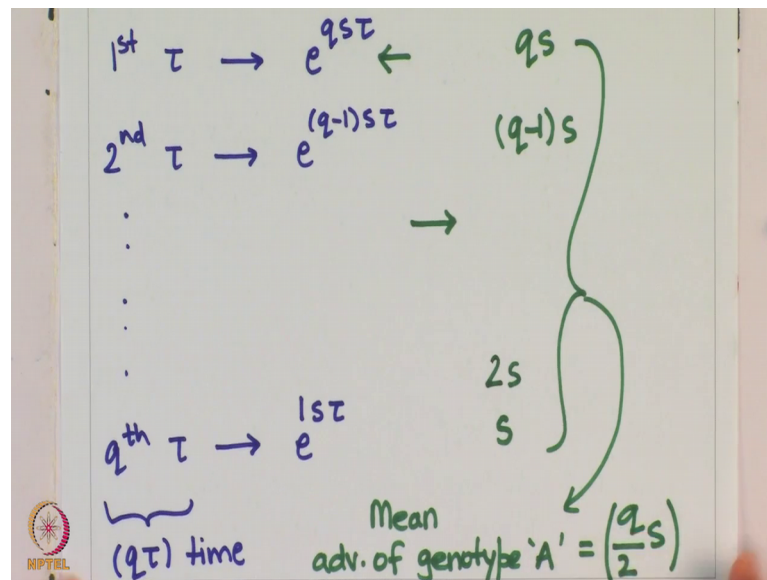 1st τ → e^{qsτ} ← qs
2nd τ → e^{(q-1)sτ} (q-1)s
→
2s
qth τ → e^{1sτ} s
(qτ) time
Mean
adv. of genotype 'A' = (q/2 s)
NPTEL